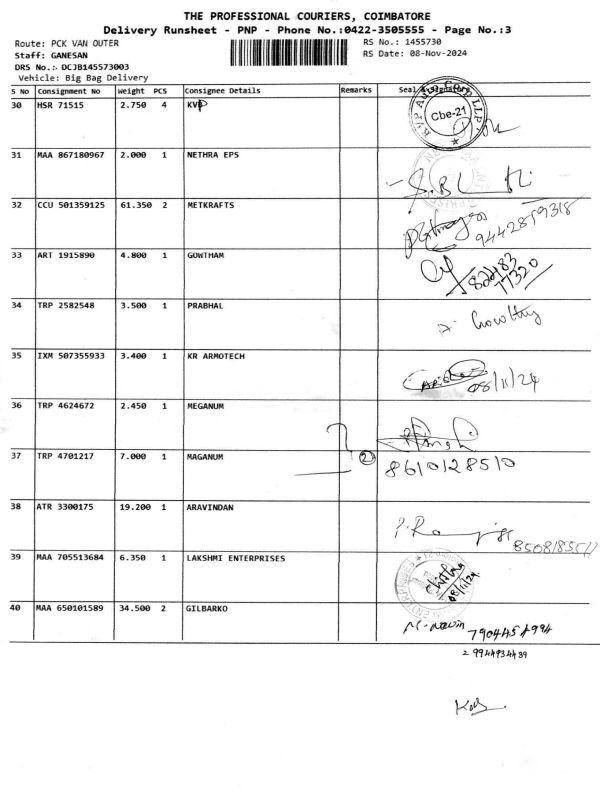 THE PROFESSIONAL COURIERS, COIMBATORE
Delivery Runsheet - PNP - Phone No.:0422-3505555 - Page No.:3
Route: PCK VAN OUTER RS No.: 1455730
Staff: GANESAN RS Date: 08-Nov-2024
DRS No.:- DCJB145573003
Vehicle: Big Bag Delivery
S No Consignment No Weight PCS Consignee Details Remarks Seal & Signature
30 HSR 71515 2.750 4 KVP
Cbe-21
31 MAA 867180967 2.000 1 NETHRA EPS
32 CCU 501359125 61.350 2 METKRAFTS
9442859318
33 ART 1915890 4.800 1 GOWTHAM
34 TRP 2582548 3.500 1 PRABHAL
35 IXM 507355933 3.400 1 KR ARMOTECH
08/11/24
36 TRP 4624672 2.450 1 MEGANUM
37 TRP 4701217 7.000 1 MAGANUM 2
8610128510
38 ATR 3300175 19.200 1 ARAVINDAN
39 MAA 705513684 6.350 1 LAKSHMI ENTERPRISES
08/11/24
40 MAA 650101589 34.500 2 GILBARKO